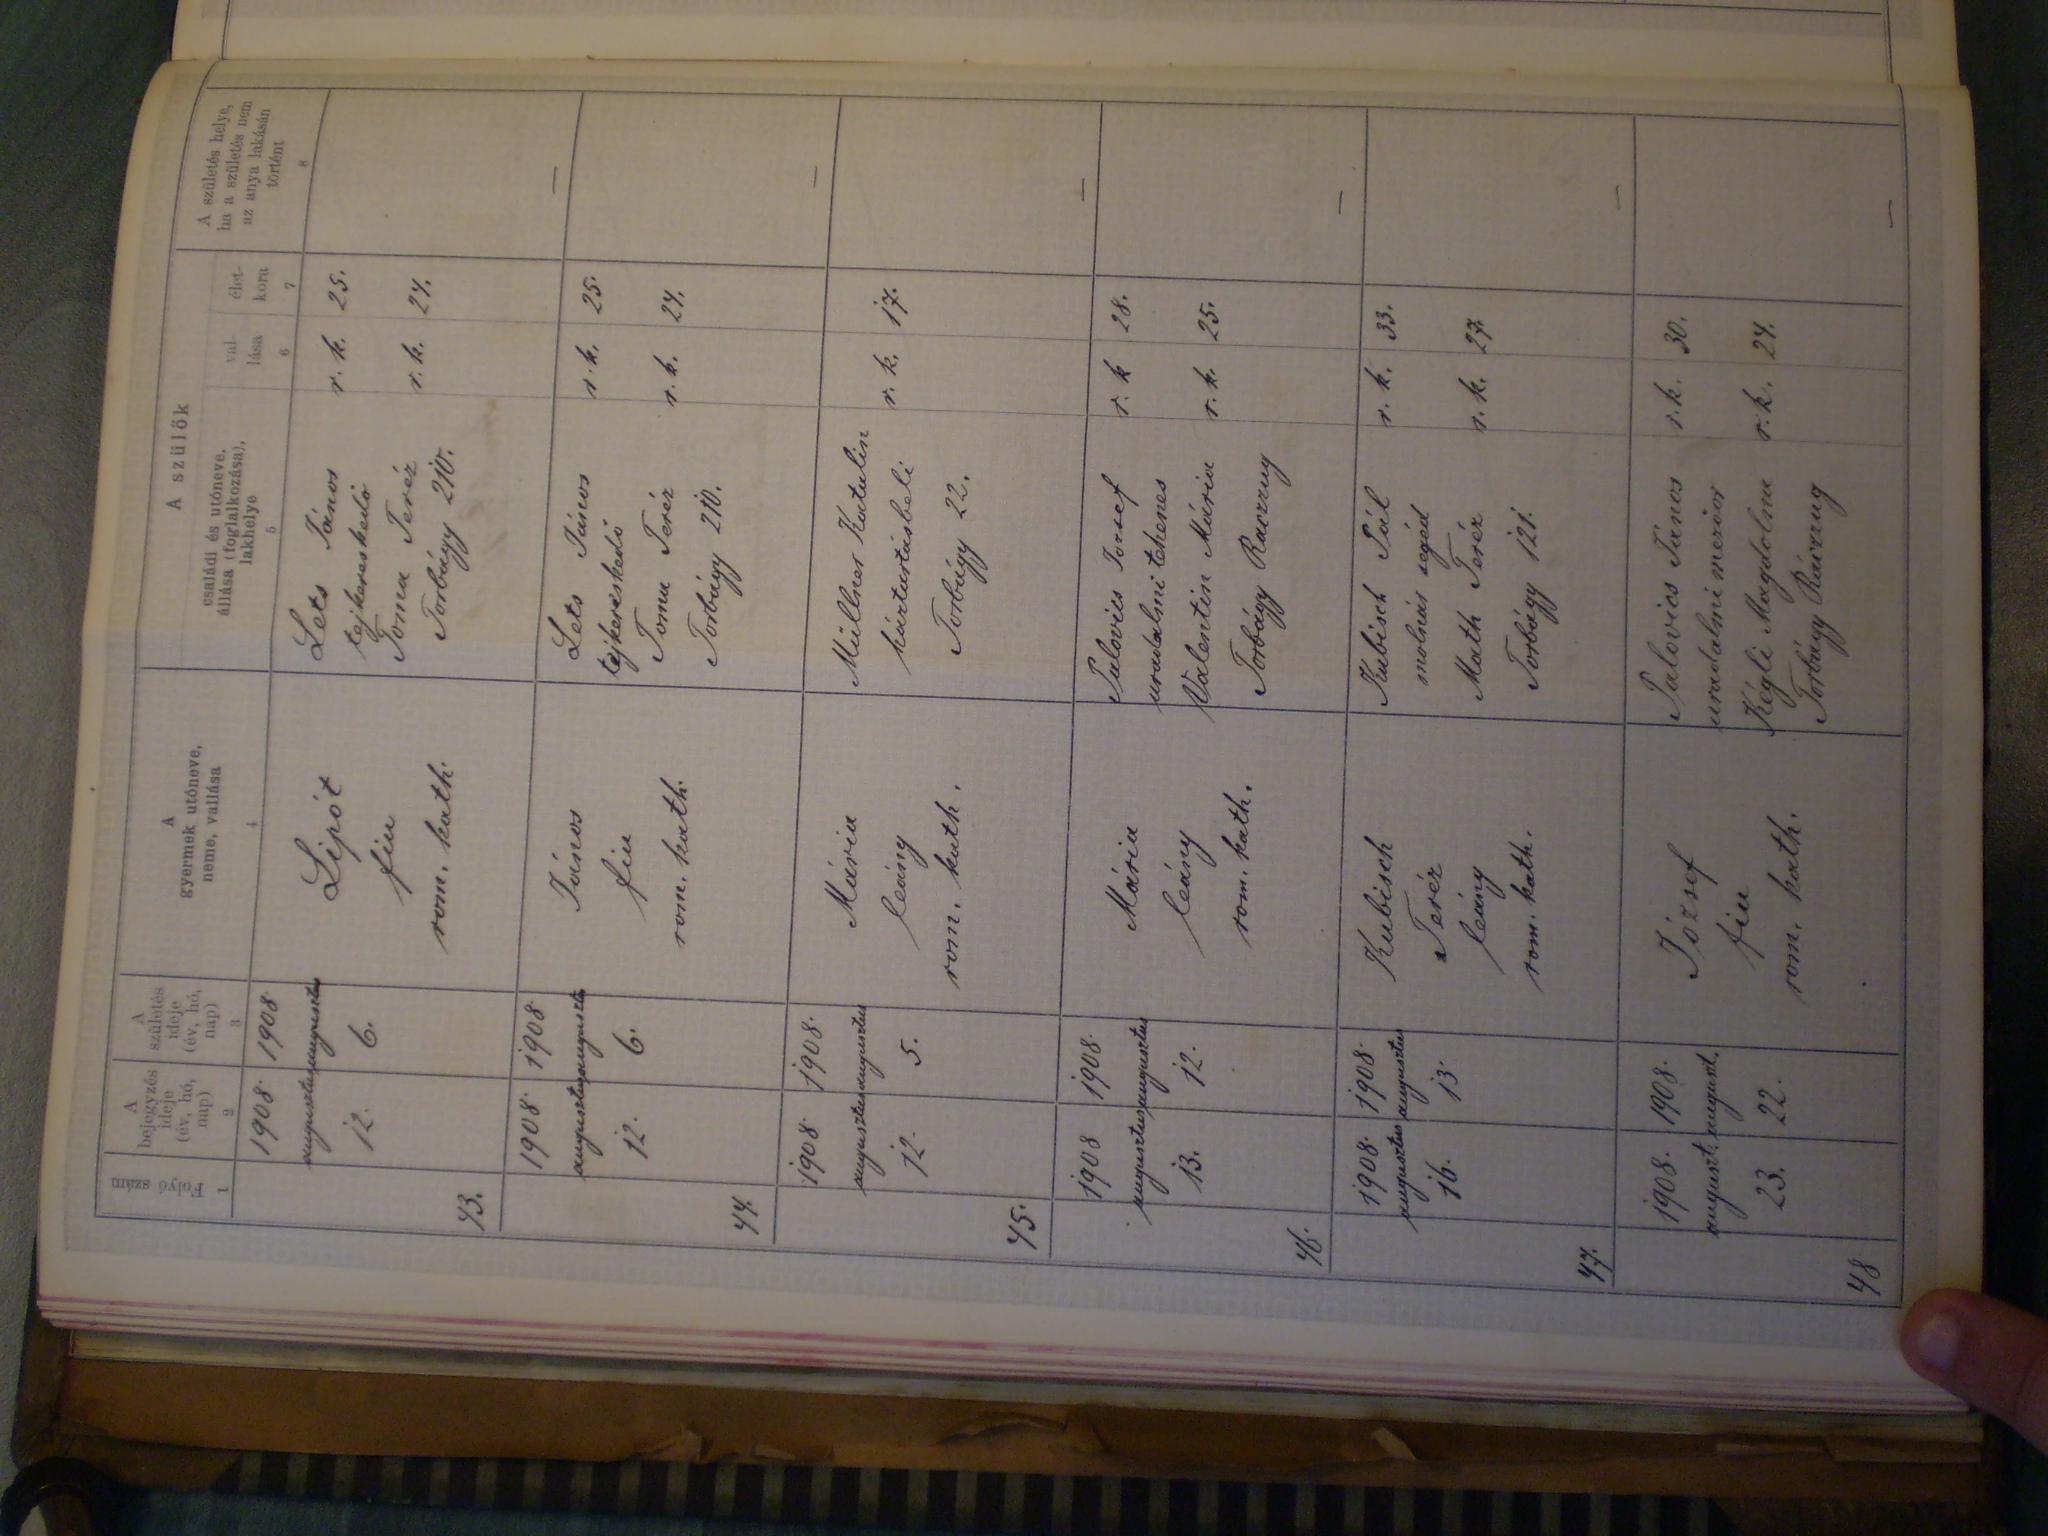 Folyó szám
1
A
bejegyzés
ideje
(év, hó,
nap)
2
A
születés
ideje
(év, hó,
nap)
3
A
gyermek utóneve,
neme, vallása
4
A szülők
családi és utóneve,
állása (foglalkozása),
lakhelye
5
val-
lása
6
élet-
kora
7
A születés helye,
ha a születés nem
az anya lakásán
történt
8
43.
1908.
augusztus
12.
1908.
augusztus
6.
Lipót
fiu
rom. kath.
Lets János
tejkereskedő
Toma Teréz
Torbágy 210.
r. k. 25.
r. k. 24.
—
44.
1908.
augusztus
12.
1908.
augusztus
6.
János
fiu
rom. kath.
Lets János
tejkereskedő
Toma Teréz
Torbágy 210.
r. k. 25.
r. k. 24.
—
45.
1908.
augusztus
12.
1908.
augusztus
5.
Mária
leány
rom. kath.
Müllner Katalin
háztartásbeli
Torbágy 22.
r. k. 17.
—
46.
1908
augusztus
13.
1908.
augusztus
12.
Mária
leány
rom. kath.
Palovics József
uradalmi tehenes
Valentin Mária
Torbágy Raczzug
r. k 28.
r. k. 25.
—
47.
1908.
augusztus
16.
1908.
augusztus
13.
Kubisch
Teréz
leány
rom. kath.
Kubisch Pál
molnár segéd
Math Teréz
Torbágy 121.
r. k. 33.
r. k. 27.
—
48
1908.
auguszt.
23.
1908.
august.
22.
József
fiu
rom. kath.
Palovics János
uradalmi
Kégli Magdolna
Torbágy Ráczzug
r. k. 30.
r. k. 24.
—